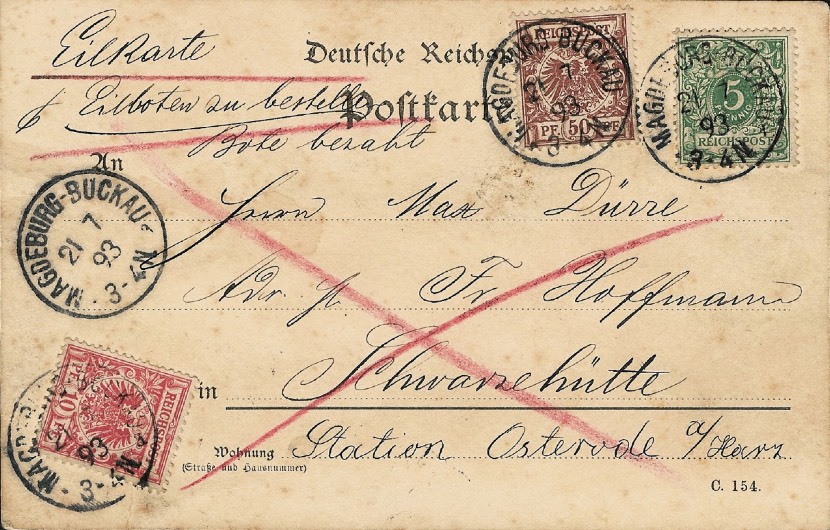 Eilkarte
Deutsche Reichs
p Eilboten zu bestellen
Postkart
Bote bezahlt
An
Herrn Max Dürre
Adr. H. Fr. Hoffmann
in Schwarzehütte
Wohnung
(Straße und Hausnummer)
Station Osterode a/Harz
C. 154.
REICHSPOST
PF 50 PF
MAGDEBURG-BUCKAU
21 7
93
3-4N
5
PFENNIG
REICHSPOST
MAGDEBURG-BUCKAU
21 7
93
3-4N
MAGDEBURG-BUCKAU
21 7
93
3-4N
REICHSPOST
10
93
3-4N